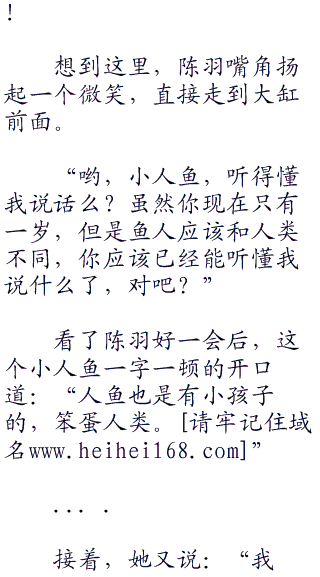 ！
想到这里，陈羽嘴角扬
起一个微笑，直接走到大缸
前面。
“哟，小人鱼，听得懂
我说话么？虽然你现在只有
一岁，但是鱼人应该和人类
不同，你应该已经能听懂我
说什么了，对吧？”
看了陈羽好一会后，这
个小人鱼一字一顿的开口
道：“人鱼也是有小孩子
的，笨蛋人类。[请牢记住域
名www.heihei168.com]”
... .
接着，她又说：“我